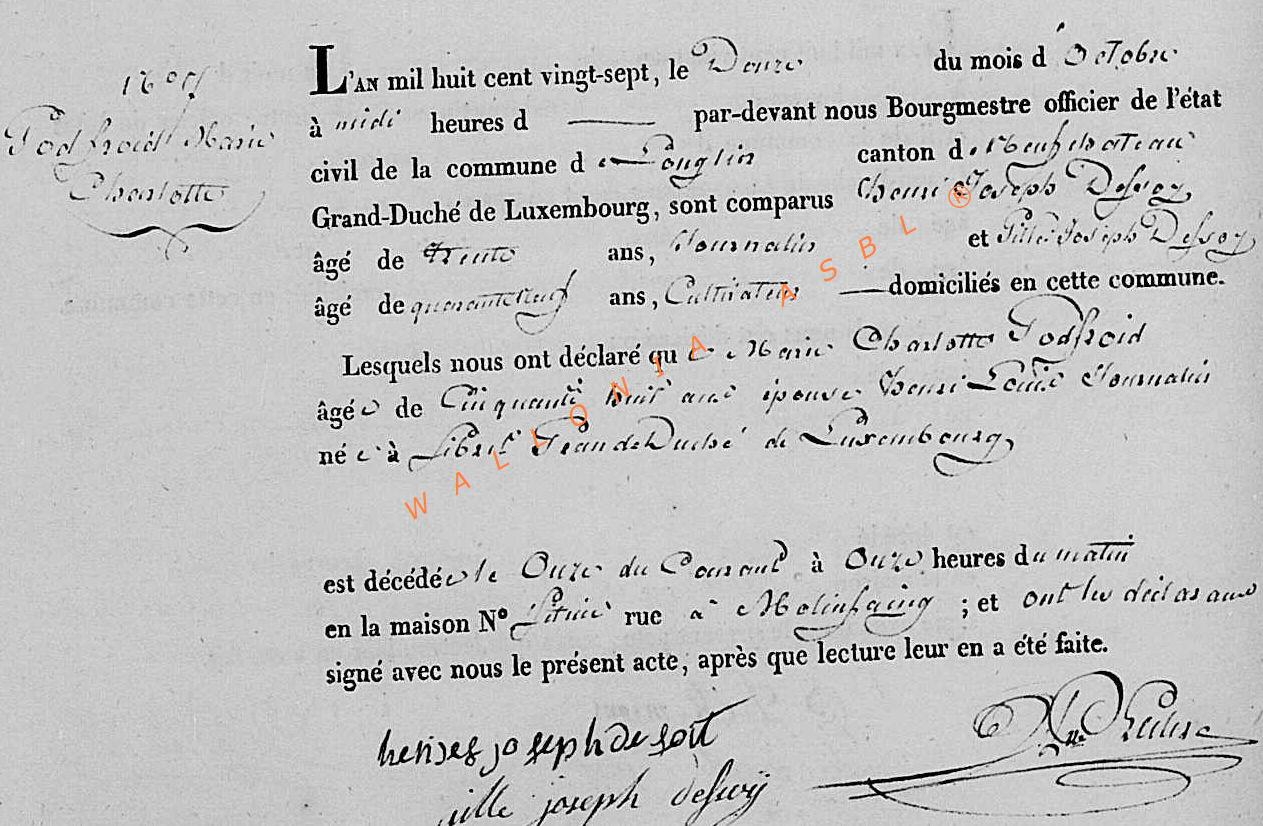 Godfroid Marie
Charlotte
L'AN mil huit cent vingt-sept, le Douze du mois d'Octobre
à midi heures d par-devant nous Bourgmestre officier de l'état
civil de la commune de Louglier canton de Neufchateau
Grand-Duché de Luxembourg, sont comparus henri Joseph Dessoy
âgé de trente ans, Journalier et Gille Joseph Dessoy
âgé de quaranteneuf ans, Cultivateur domiciliés en cette commune.
Lesquels nous ont déclaré que Marie Charlotte Godfroid
âgée de Cinquante huit ans épouse henri Journalier
née à Libr Grand Duché de Luxembourg
est décédée le Onze du Courant à Onze heures du matin
en la maison N° située rue à Molinfaing ; et ont les déclarans
signé avec nous le présent acte, après que lecture leur en a été faite.
joseph desoit
gille joseph dessoÿ
WALLONIA ASBL ®